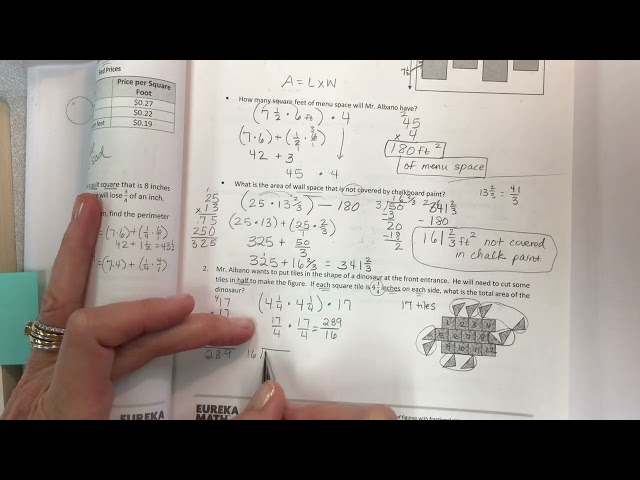 Price per Square
Foot
$0.27
$0.22
$0.19
quilt square that is 8 inches
will lose 3/4 of an inch.
find the perimeter
= (7·6)+(1/4·6/1)
42 + 1 1/2 = 43 1/2
= (7·4)+(1/4·4/1)
A = L×W
7 1/2
How many square feet of menu space will Mr. Albano have?
(7 1/2 · 6 ft) · 4
(7·6)+(1/2·6/1)
42 + 3
45 · 4
45
× 4
180 ft²
of menu space
What is the area of wall space that is not covered by chalkboard paint?
13 2/3 = 41/3
25
×13
75
250
325
(25 · 13 2/3) — 180
(25·13)+(25/1·2/3)
325 + 50/3
325 + 16 2/3 = 341 2/3
16 2/3
3)50
-3
20
-18
2
161 2/3 ft² not covered
in chalk paint
2. Mr. Albano wants to put tiles in the shape of a dinosaur at the front entrance. He will need to cut some
tiles in half to make the figure. If each square tile is 4 1/4 inches on each side, what is the total area of the
dinosaur?
17
(4 1/4 · 4 1/4) · 17
17 tiles
17/4 · 17/4 = 289/16
289
16)
1 2 3 4
5 6 7 8
9 10 11 12
EUREKA
MATH
EUREKA
MATH